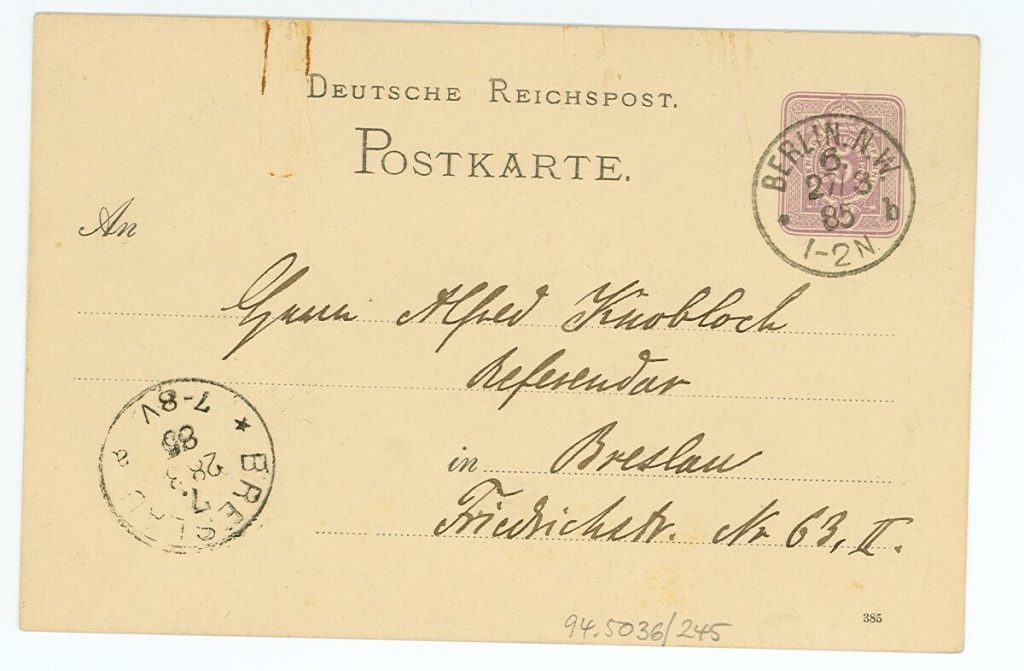 DEUTSCHE REICHSPOST.
POSTKARTE.
BERLIN. N.W.
6.
27 3
85
b
1-2N.
An
Herrn Alfred Knobloch
Referendar
in Breslau
Friedrichstr. Nr 63, II.
BRESLAU
7.
28.3
85
7-8V
a
385
94.5036/245